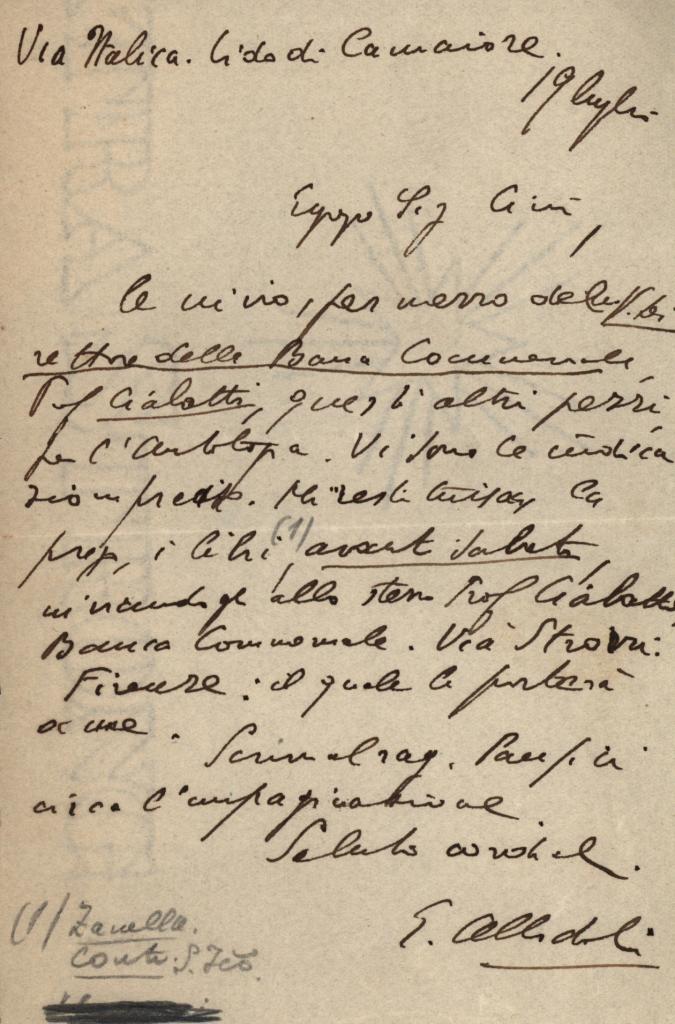 Via Italica. Lido di Camaiore.
19 luglio
Egregio Sig Cini,
Le invio, per mezzo del
rettore della Banca Commerciale,
Prof Cialotti, questi altri pezzi
per l'Antologia. Vi sono le indica
zioni precise. Mi restituisca, La
prego, i libri (1), avanti sabato,
inviandogli allo stesso Prof Cialotti
Banca Commerciale. Via Strozzi:
Firenze: il quale le porterà
a me.
Scrivo al rag. Panfini
circa l'impaginazione.
Saluto cordial.
E. Allodoli
(1) Zanella.
Conti. S. Fco.